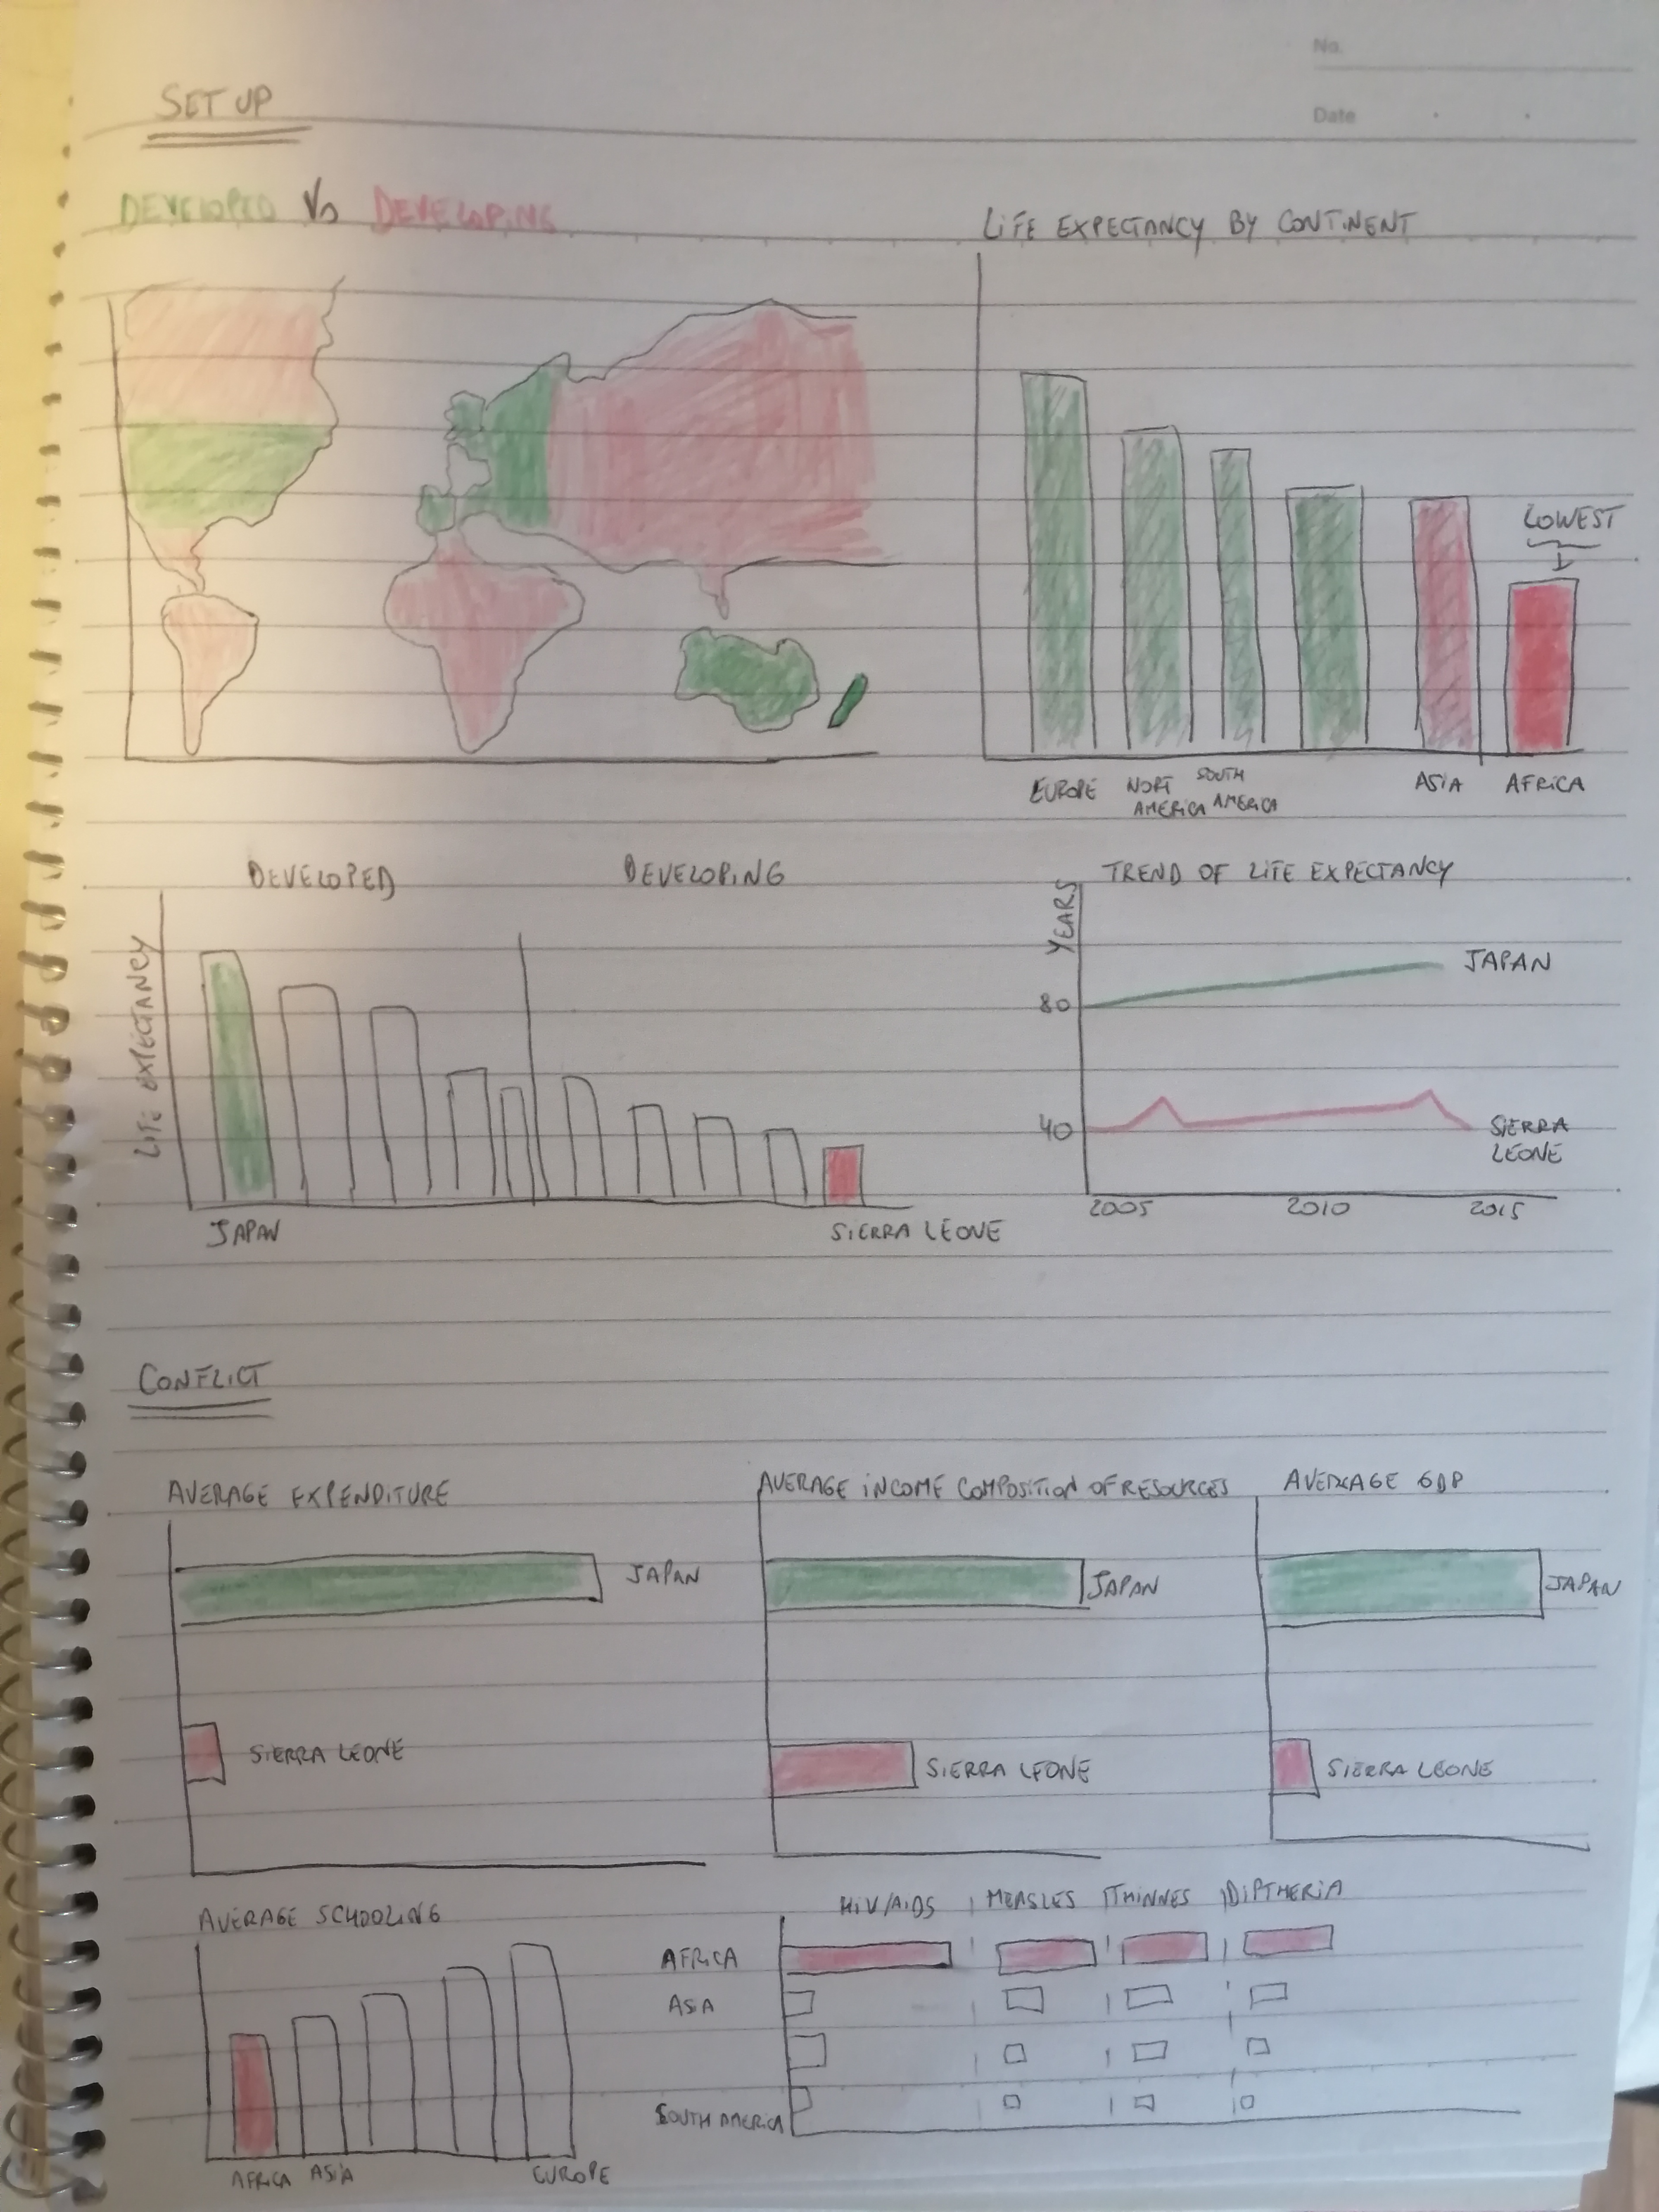 No.
Date
SET UP
DEVELOPED Vs DEVELOPING
LIFE EXPECTANCY BY CONTINENT
LOWEST
EUROPE
NORT
AMERICA
SOUTH
AMERICA
ASIA
AFRICA
DEVELOPED
DEVELOPING
LIFE EXPECTANCY
JAPAN
SIERRA LEONE
TREND OF LIFE EXPECTANCY
YEARS
80
40
JAPAN
SIERRA
LEONE
2005 2010 2015
CONFLICT
AVERAGE EXPENDITURE
JAPAN
SIERRA LEONE
AVERAGE INCOME COMPOSITION OF RESOURCES
JAPAN
SIERRA LEONE
AVERAGE GDP
JAPAN
SIERRA LEONE
AVERAGE SCHOOLING
AFRICA ASIA EUROPE
HIV/AIDS | MEASLES | THINNES | DIPTHERIA
AFRICA
ASIA
SOUTH AMERICA